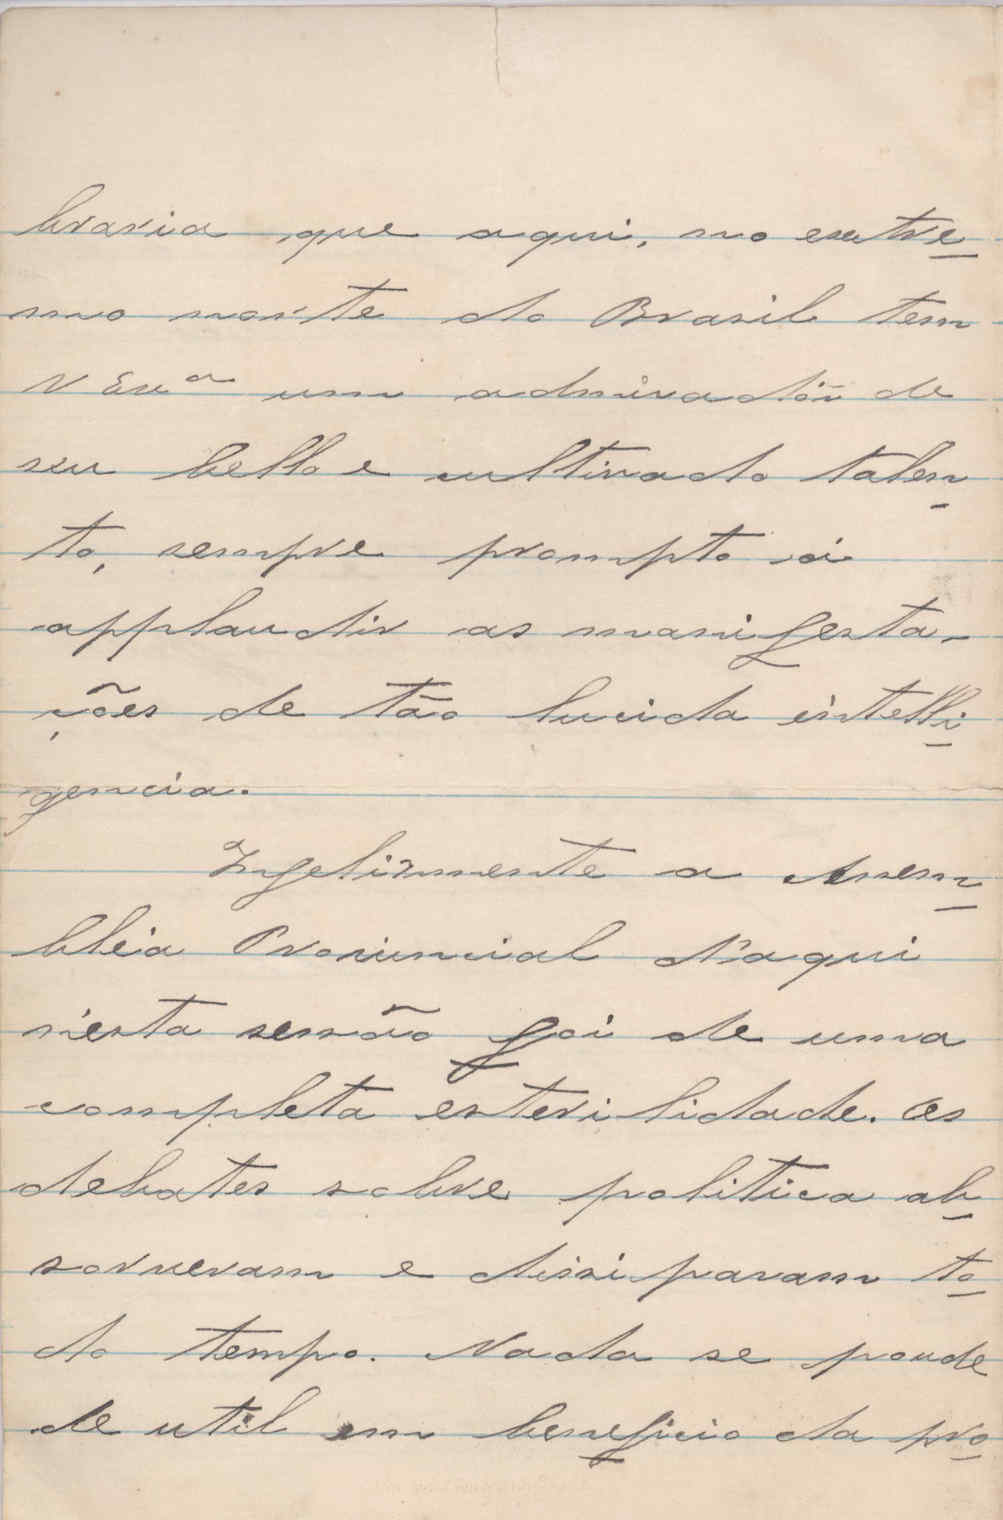 braria que aqui, no extre-
mo norte do Brasil tem
V Exª um admirador de
seu bello e cultivado talen-
to, sempre prompto á
applaudir as manifesta-
ções de tão lucida intelli-
gencia.
Infelizmente a Assem-
bléia Provincial d'aqui
n'esta sessão foi de uma
completa esterilidade. Os
debates sobre politica ab-
sorveram e dissiparam to-
do tempo. Nada se poude
de util em beneficio da pro-